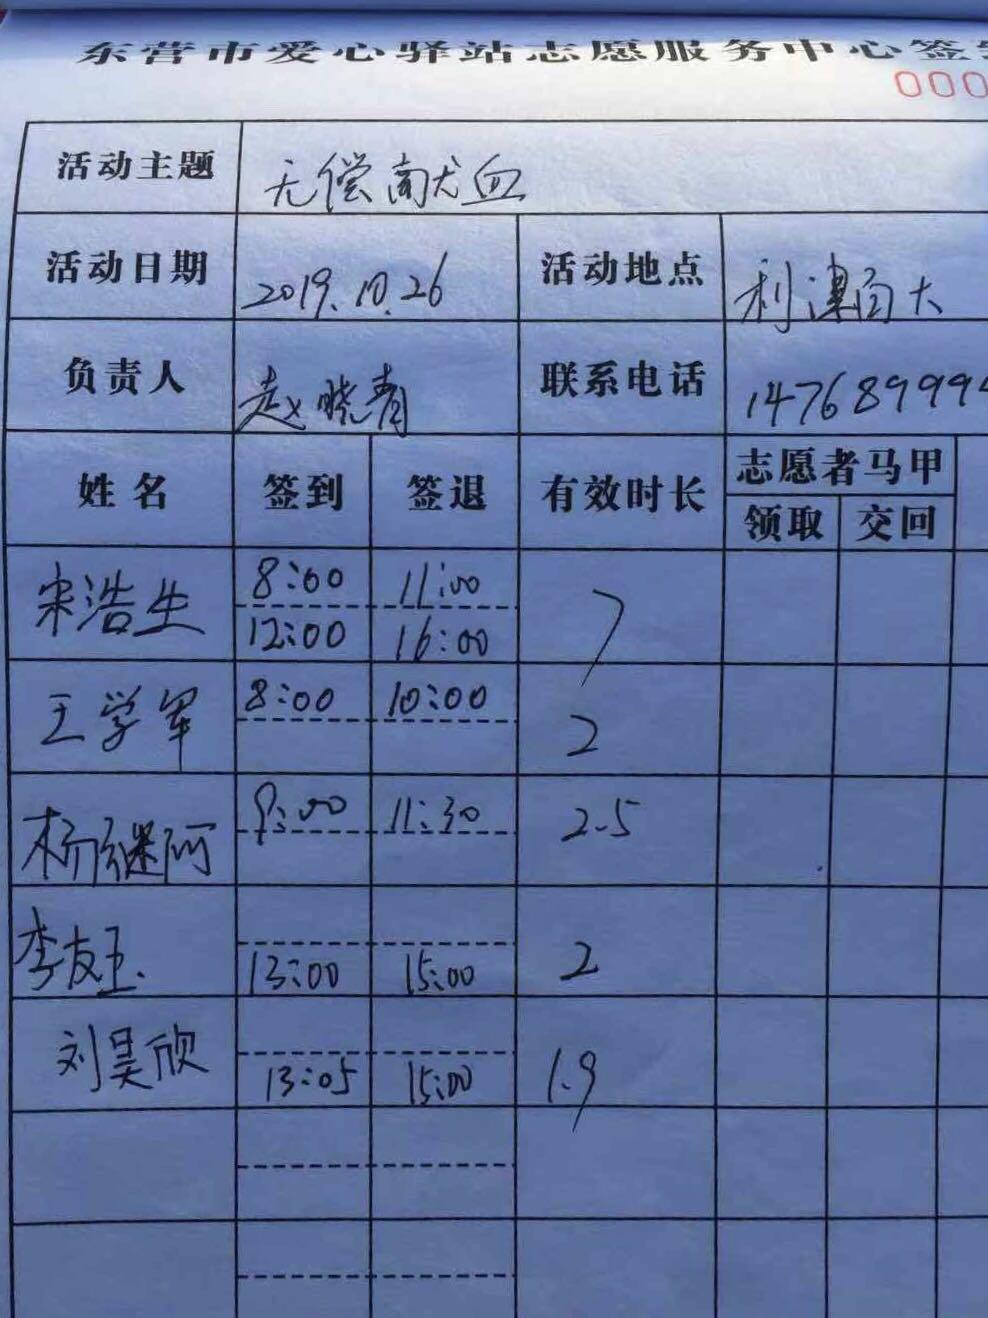 东营市爱心驿站志愿服务中心签
000
活动主题 无偿献血
活动日期 2019.10.26 活动地点 利津百大
负责人 赵晓青 联系电话 147689994
姓名 签到 签退 有效时长 志愿者马甲
领取 交回
宋浩生 8:00 11:00 7
12:00 16:00
王学军 8:00 10:00 2
杨继阿 9:00 11:30 2.5
李友玉. 13:00 15:00 2
刘昊欣 13:05 15:00 1.9